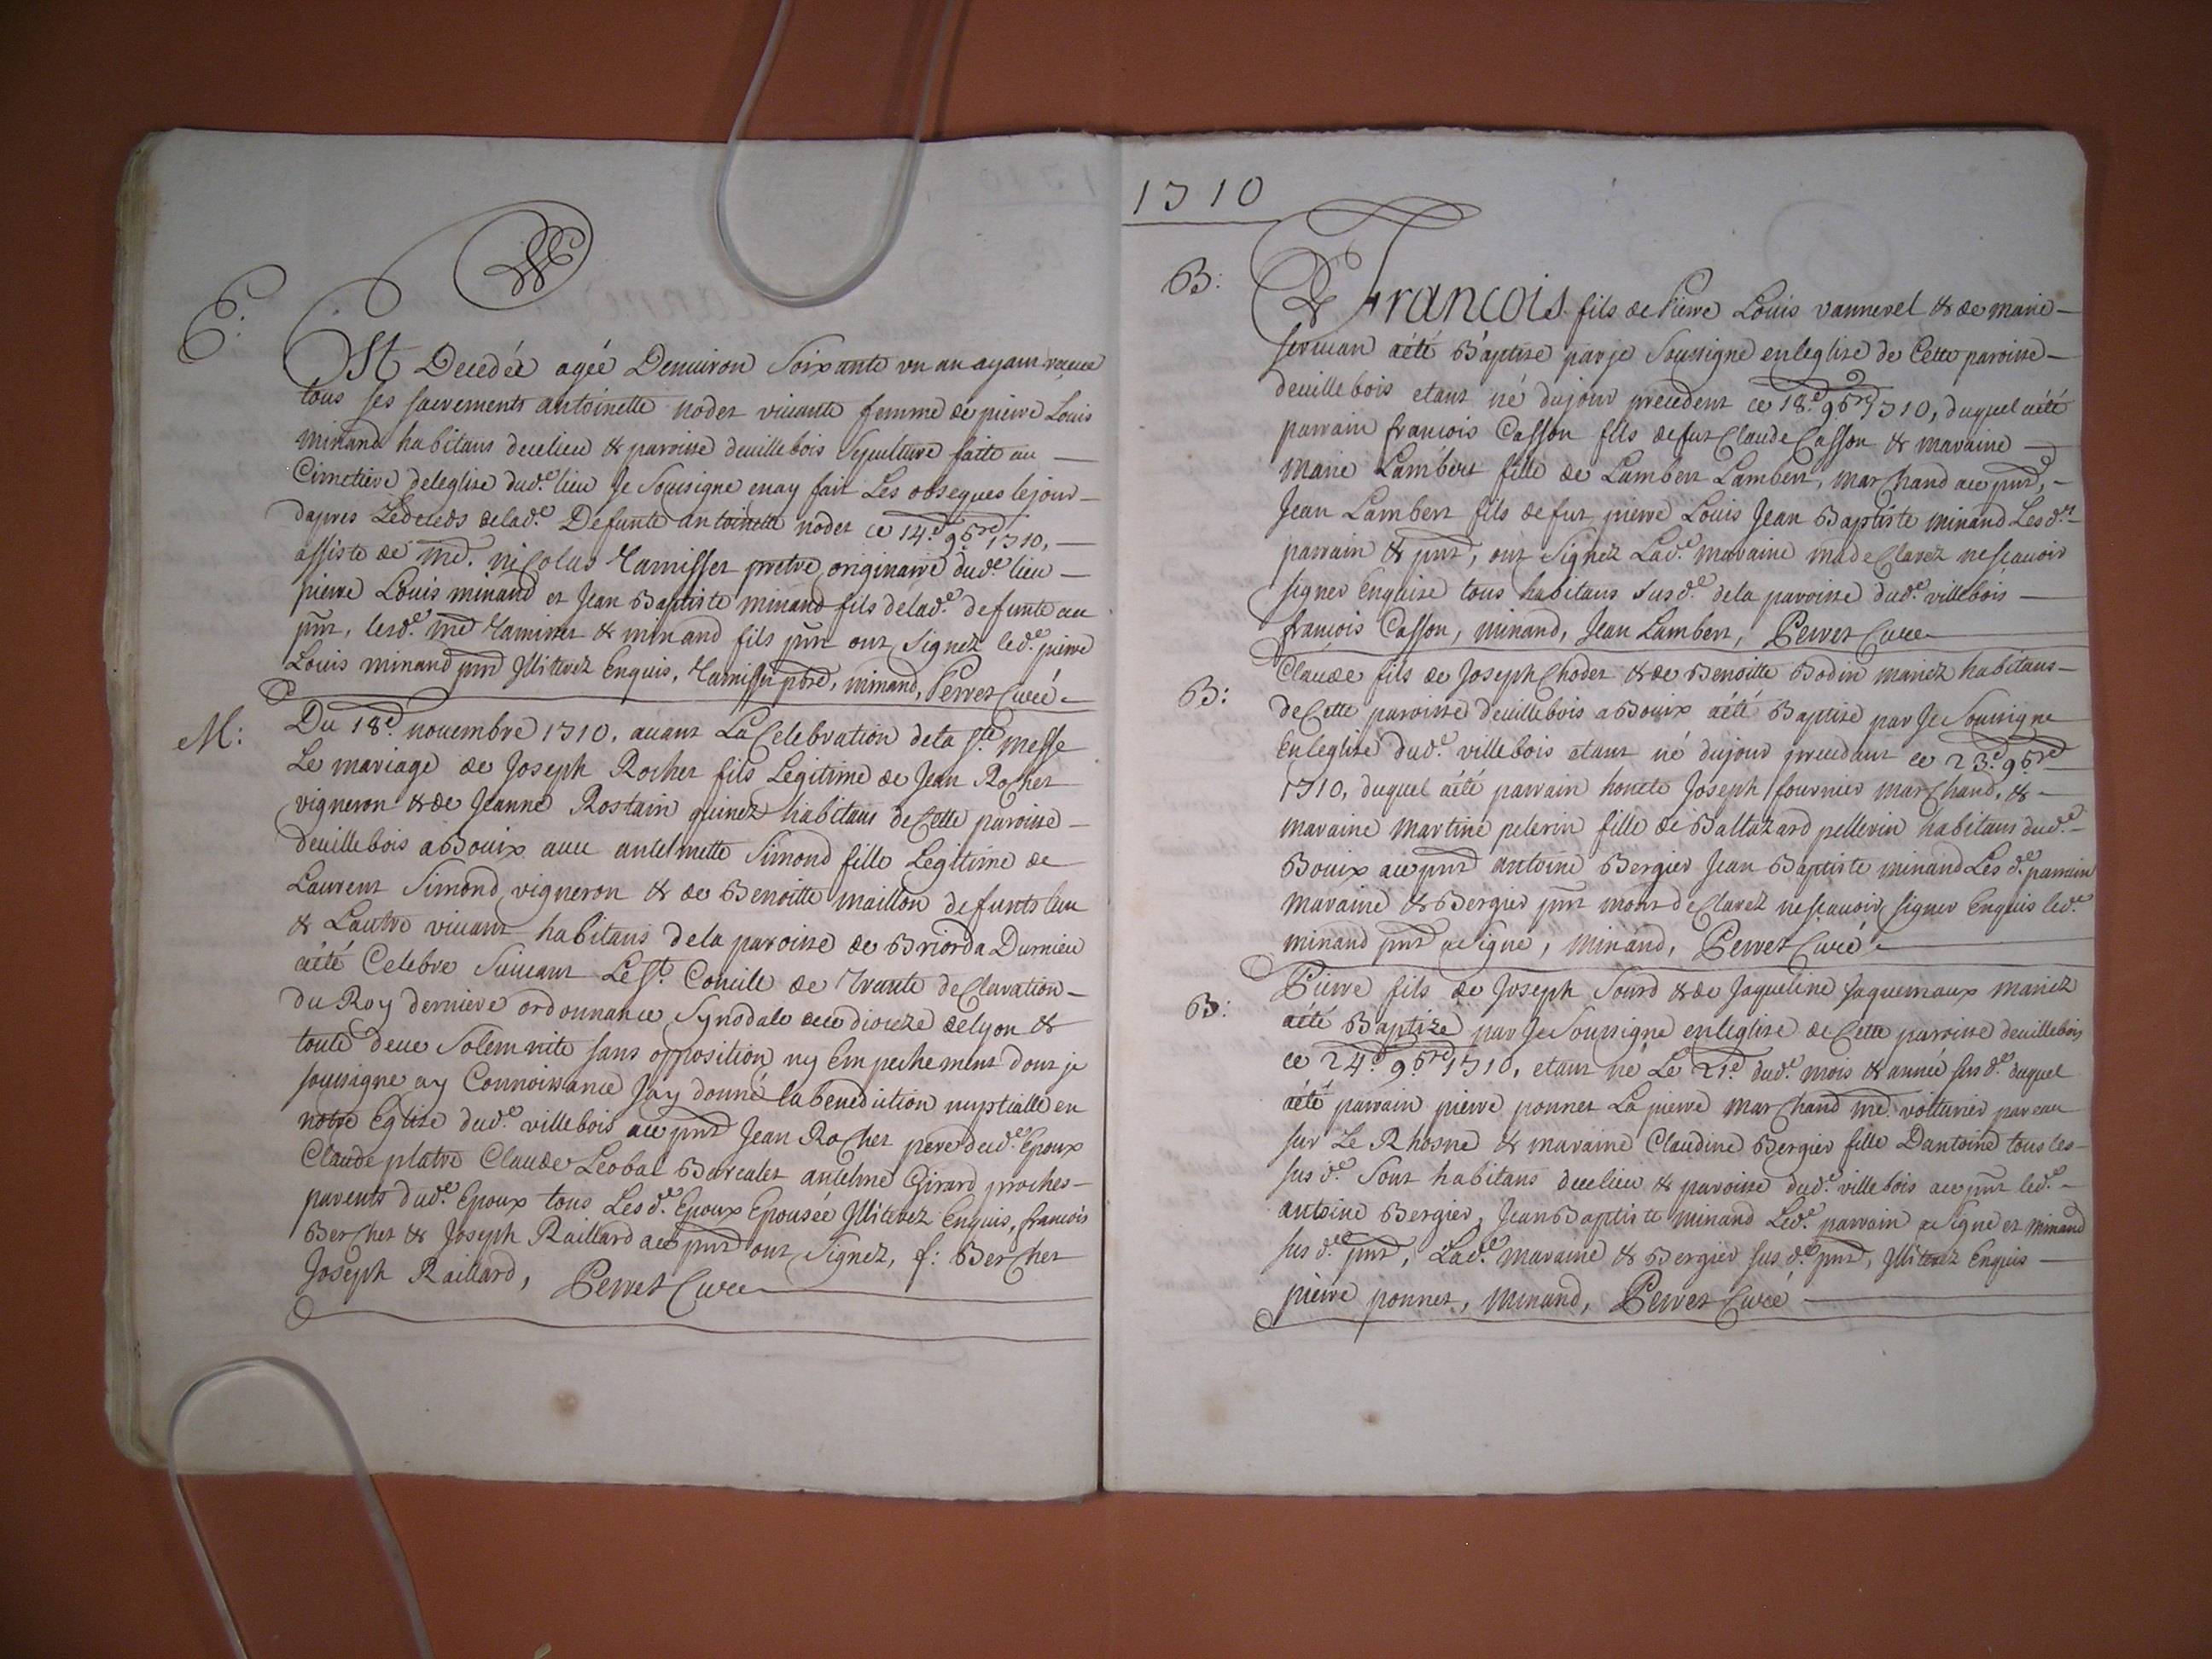 E:
Est Decedée agée Denuiron Soixante vn an ayant receue
tous ses sacrements antoinette nodet viuante femme de pierre Louis
minand habitans decelieu & paroisse deuillebois Sepulture faite au
Cimetiere deleglise dud.e lieu Je Soussigne enay fait Les obseques lejour
dapres Ledeceds delad.e Defunte antoinette nodet ce 14.e 9bre 1710,
assiste de me. nicolas pretre originaire dud.e lieu
pierre Louis minand et Jean Baptiste minand fils delad.e defunte au
pnt, lesd.e me & minand fils pnt ont Signez led.e pierre
Louis minand pnt Jlliterez Enquis, pbre, minand, Perret Curé
M:
Du 18.e nouembre 1710. auant La Celebration dela ste messe
Le mariage de Joseph Rochet fils Legitime de Jean Rochet
vigneron & de Jeanne Rostain habitans deCette paroisse
deuillebois aBouix auec antelmette Simond fille Legitime de
Laurent Simond vigneron & de Benoitte maillon defunts Lun
& Lautre viuant habitans dela paroisse de Briorda Durnieu
aété Celebre Suiuant Le st. Concile de Trante deClaration
du Roy derniere ordonnance Synodale dece diocèze delyon &
toute deue Solemnite sans opposition ny Empechement dont je
soussigne ay Connoissance Jay donné la benediction nuptialle en
notre Eglise dud.e villebois aupnt Jean Rochet pere dud.e Epoux
Claude platre Claude Leobal Barcalet antelme Girard proches
parents dud.e Epoux tous Lesd.e Epoux Epousée Jlliterez Enquis, francois
Berchet & Joseph Raillard au pnt ont Signez, f: Berchet
Joseph Raillard, Perret Curé
1710
B:
Francois fils de Pierre Louis vannerel & de marie
seruan aété Baptise par je Soussigne enleglise de Cette paroisse
deuillebois etant né dujour precedent ce 18.e 9bre 1710, duquel aété
parrain francois Casson fils defut Claude Casson & maraine
marie Lambert fille de Lambert Lambert, marChand au pnt,
Jean Lambert fils defut pierre Louis Jean Baptiste minand Lesd.ts
parrain & pnt, ont Signez Lad.e maraine madeClarez nescauoir
signer Enquise tous habitans susd.e dela paroisse dud.e villebois
francois Casson, minand, Jean Lambert, Perret Curé
B:
Claude fils de Joseph Chodet & de Benoitte Bodin mariez habitans
deCette paroisse deuillebois aBouix aété Baptise par Je Soussigne
Enleglise dud.e villebois etant né dujour precedant ce 23.e 9bre
1710, duquel aété parrain honete Joseph fournier marChand, &
maraine martine pelerin fille de Baltazard pellerin habitans dud.e
Bouix au pnt antoine Bergier Jean Baptiste minand Lesd.e parrain
maraine & Bergier pnt mont deClarez nescauoir signer Enquis led.e
minand pnt asigne, minand, Perret Curé
B:
Pierre fils de Joseph Sourd & de Jaqueline Jaquemaux mariez
aété Baptize par Je Soussigne enleglise de Cette paroisse deuillebois
ce 24.e 9bre 1710, etant né Le 21.e dud.e mois & année susd.e duquel
aété parrain pierre ponnet La pierre marChand me. voiturier pareau
sur Le Rhosne & maraine Claudine Bergier fille Dantoine tous les
susd.e Sont habitans decelieu & paroisse dud.e villebois au pnt led.e
antoine Bergier, Jean Baptiste minand Led.e parrain asigne et minand
susd.e pnt, Lad.e maraine & Bergier susd.e pnt, Jlliterez Enquis
pierre ponnet, minand, Perret Curé